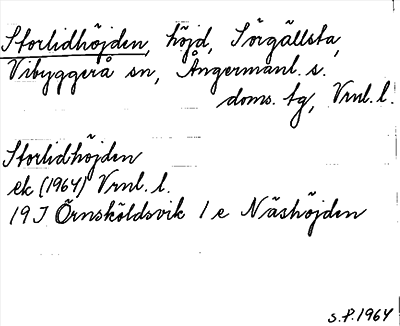 Storlidhöjden, höjd, Sörgällsta,
Vibyggerå sn, Ångermanl. s.
doms. tg, Vrnl. l.
Storlidhöjden
ek (1964) Vrnl. l.
19 J Örnsköldsvik 1 e Näshöjden
S.P. 1964